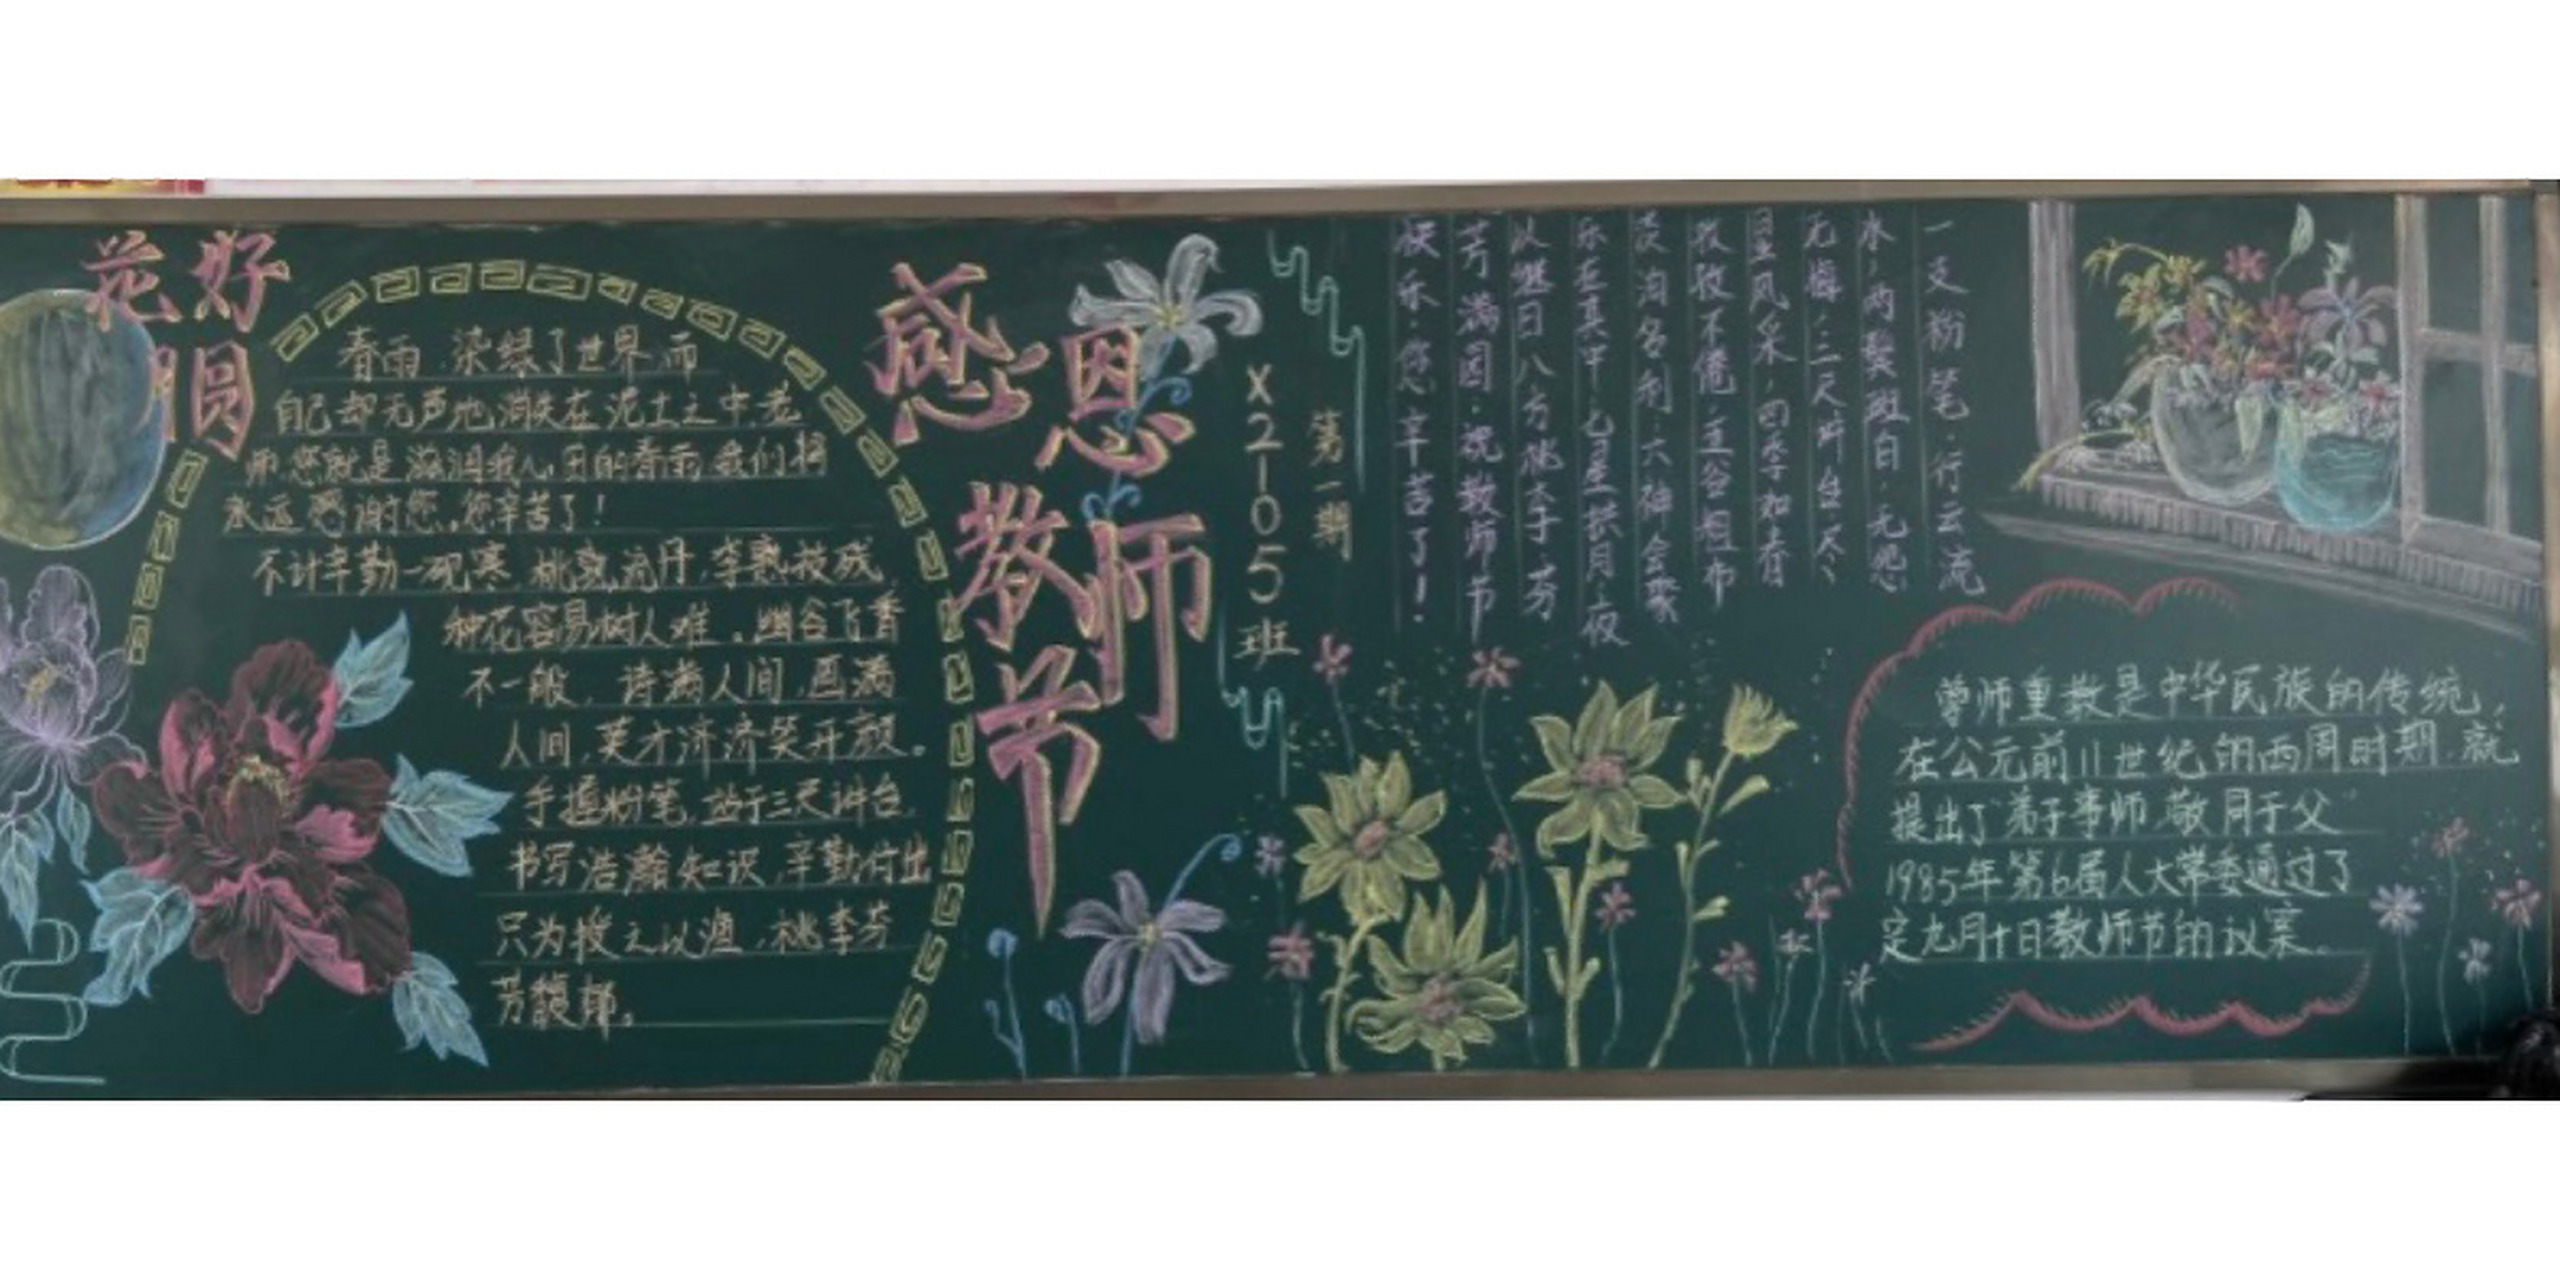 花好
月圆
春雨,染绿了世界,而
自己却无声地消失在泥土之中,老
师,您就是滋润我心田的春雨,我们将
永远感谢您。您辛苦了!
不计辛勤一砚寒,桃熟流丹,李熟枝残,
种花容易树人难。幽谷飞香
不一般,诗满人间,画满
人间,英才济济笑开颜。
手握粉笔,站于三尺讲台,
书写浩瀚知识,辛勤付出
只为授之以渔,桃李芬
芳馥郁。
感恩
教师
节
X2105班
第一期
一支粉笔,行云流
水,两鬓斑白,无怨
无悔,三尺讲台,尽
显风采,四季如春
孜孜不倦,五谷粗布
淡泊名利,六神会聚
乐在其中,七星拱月,夜
以继日,八方桃李,芬
芳满园,祝教师节
快乐,您辛苦了!
尊师重教是中华民族的传统,
在公元前11世纪的西周时期,就
提出了"弟子事师,敬同于父"
1985年第6届人大常委通过了
定九月十日教师节的议案。